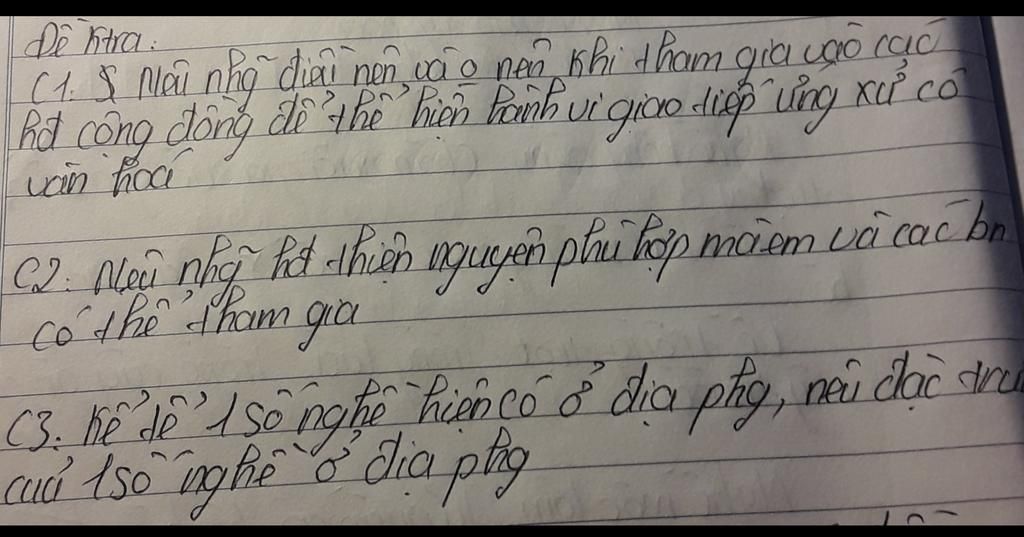 Đề Ktra:
C1. Nêu nhg~ điều nên và o nên khi tham gia vào các
hđ cộng đồng để thể hiện hành vi giao tiếp ứng xử có
văn hoá
C2: Nêu nhg~ hđ thiện nguyện phù hợp mà em và các bn
có thể tham gia
C3. Kể để 1 số nghề hiện có ở địa phg, nêu đặc tru
của 1 số nghề ở địa phg